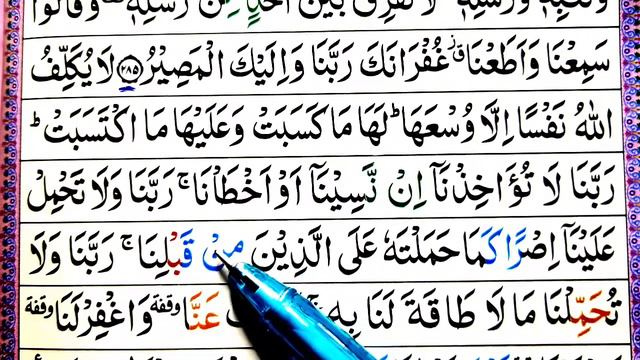 وَكُتُبِهٖ وَرُسُلِهٖ لَا نُفَرِّقُ بَيْنَ اَحَدٍ مِّنْ رُّسُلِهٖ وَقَالُوْا
سَمِعْنَا وَاَطَعْنَا غُفْرَانَكَ رَبَّنَا وَاِلَيْكَ الْمَصِيْرُ ۲۸۵ لَا يُكَلِّفُ
اللّٰهُ نَفْسًا اِلَّا وُسْعَهَا ؕ لَهَا مَا كَسَبَتْ وَعَلَيْهَا مَا اكْتَسَبَتْ ؕ
رَبَّنَا لَا تُؤَاخِذْنَاۤ اِنْ نَّسِيْنَاۤ اَوْ اَخْطَاْنَا ۚ رَبَّنَا وَلَا تَحْمِلْ
عَلَيْنَاۤ اِصْرًا كَمَا حَمَلْتَهٗ عَلَى الَّذِيْنَ مِنْ قَبْلِنَا ۚ رَبَّنَا وَلَا
تُحَمِّلْنَا مَا لَا طَاقَةَ لَنَا بِهٖ عَنَّا وقفة وَاغْفِرْ لَنَا وقفة